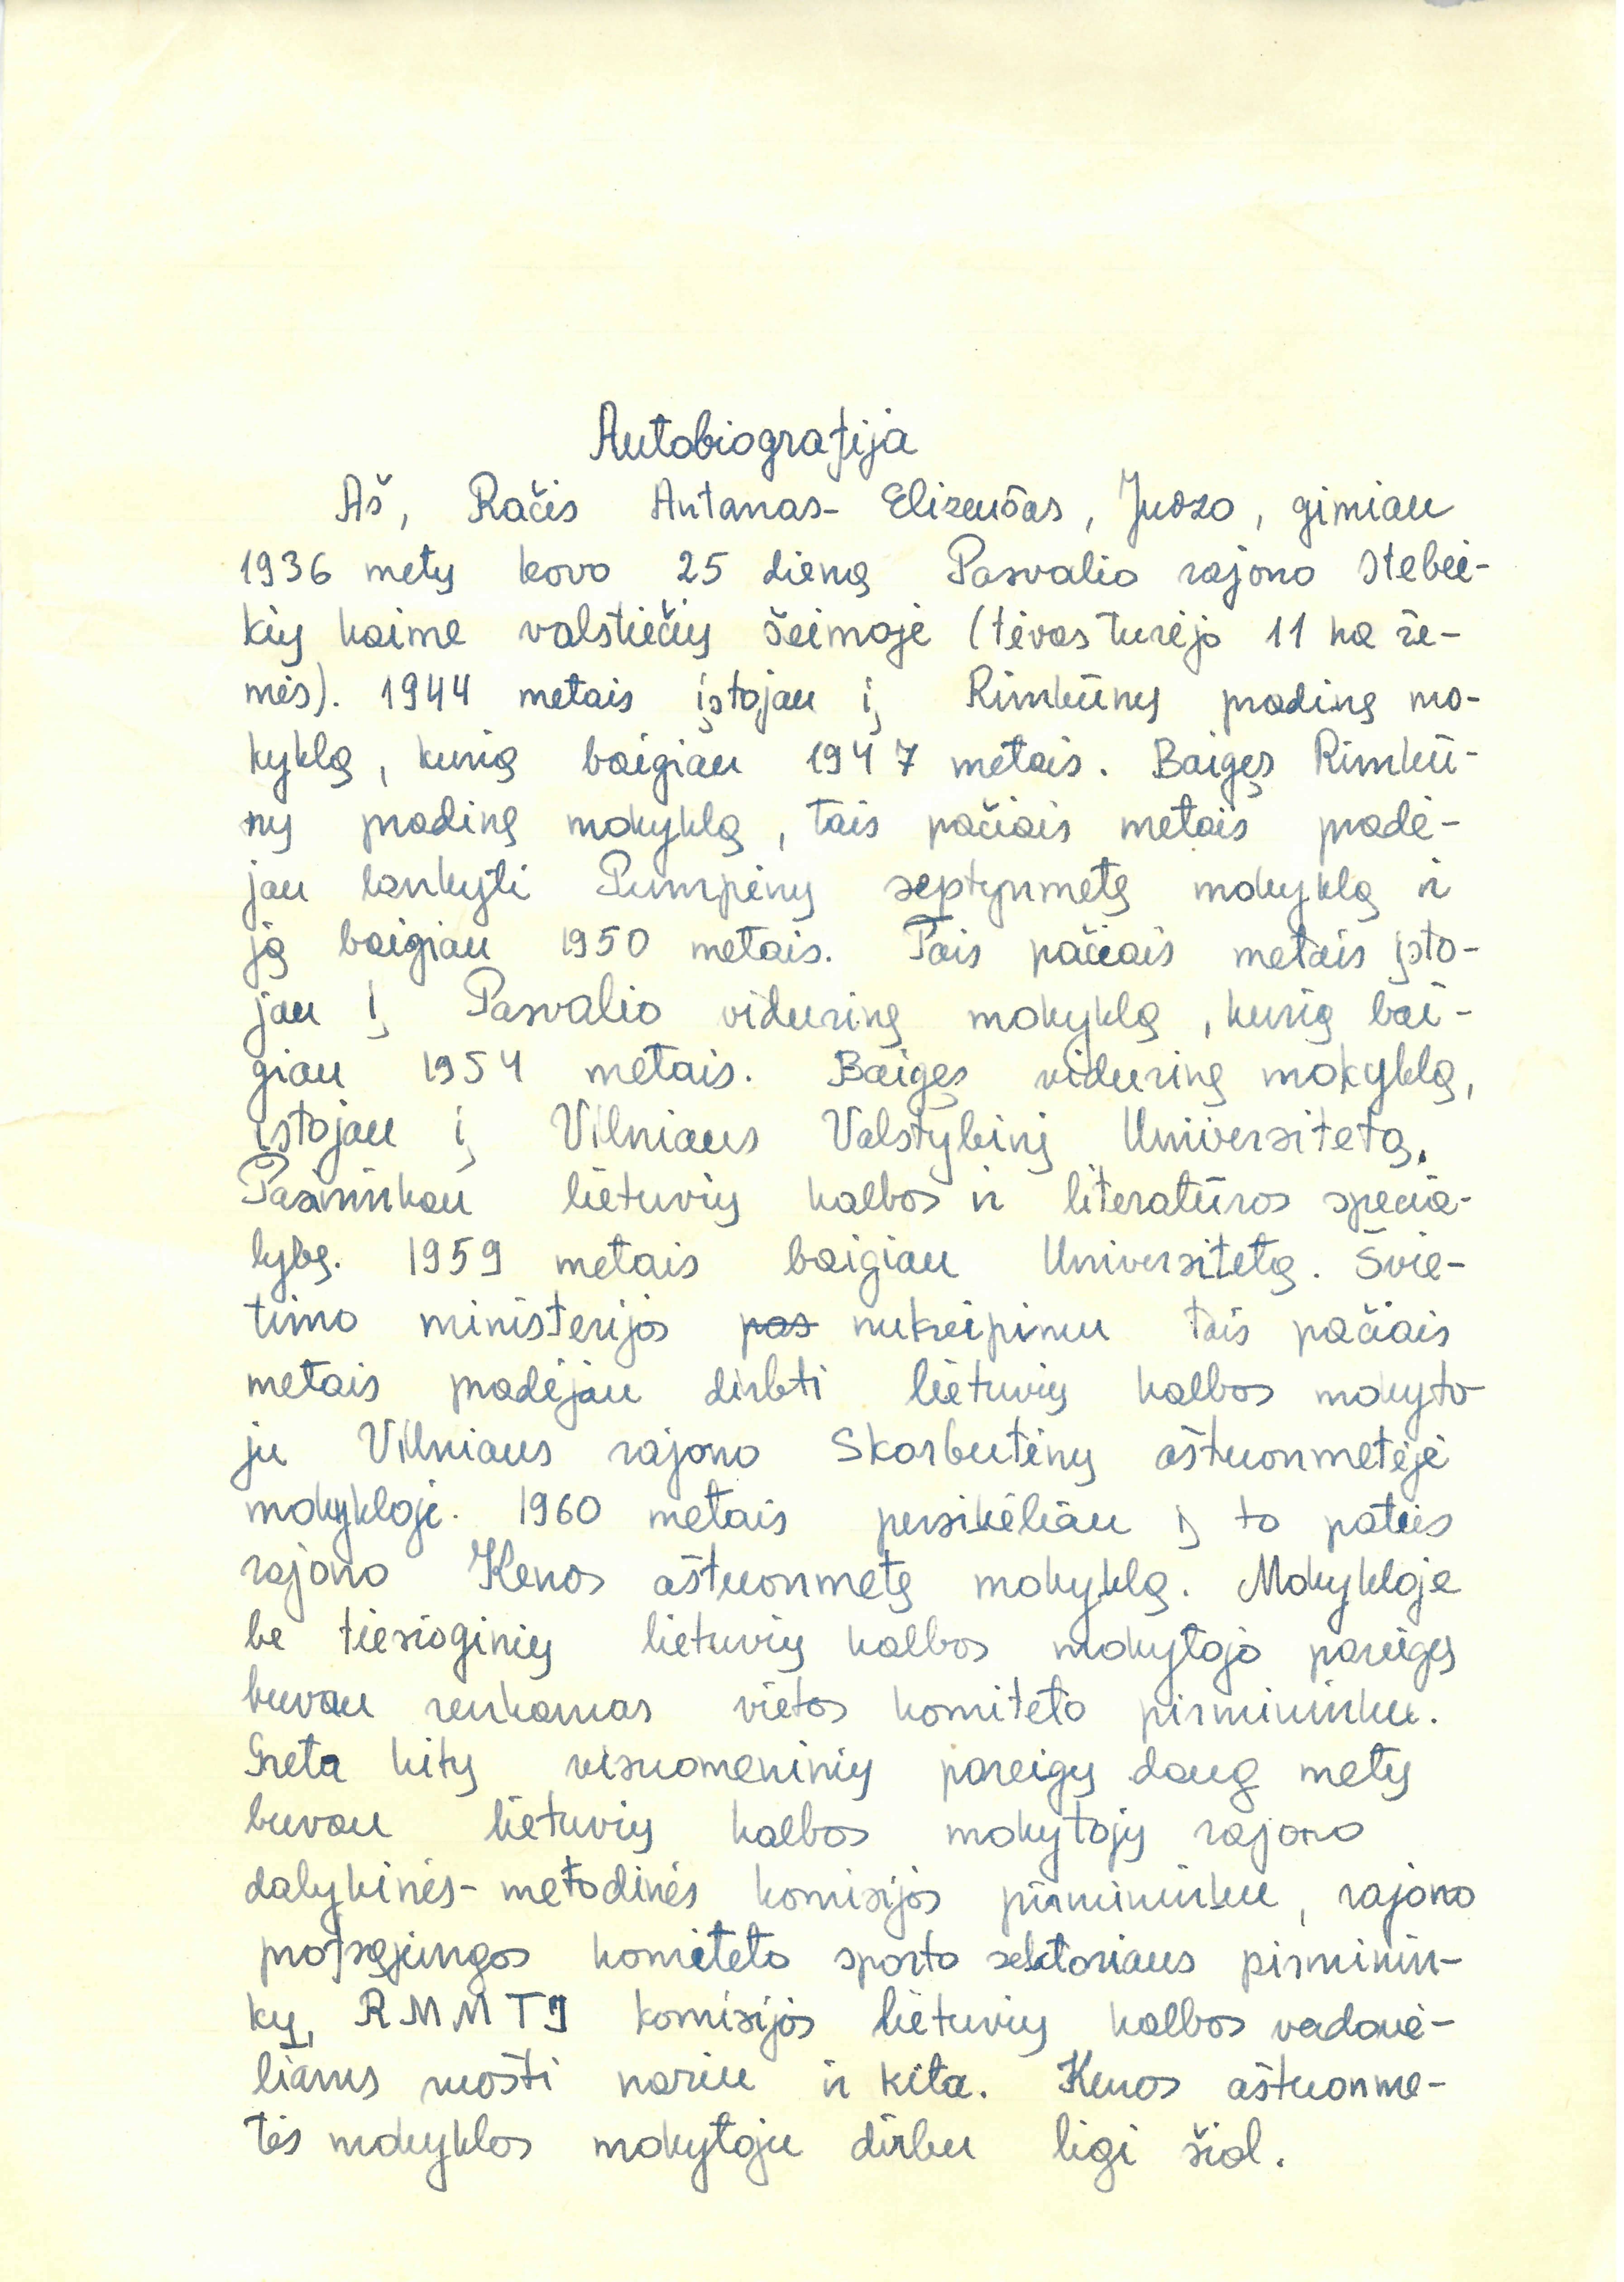 Autobiografija
Aš, Račis Antanas- Elizeušas, Juozo, gimiau
1936 metų kovo 25 dieną Pasvalio rajono Stebei-
kių kaime valstiečių šeimoje (tėvas turėjo 11 ha že-
mės). 1944 metais įstojau į Rimkūnų pradinę mo-
kyklą, kurią baigiau 1947 metais. Baigęs Rimkū-
nų pradinę mokyklą, tais pačiais metais pradė-
jau lankyti Pumpėnų septynmetę mokyklą ir
ją baigiau 1950 metais. Tais pačiais metais įsto-
jau į Pasvalio vidurinę mokyklą, kurią bai-
giau 1954 metais. Baigęs vidurinę mokyklą,
įstojau į Vilniaus Valstybinį Universitetą.
Pasirinkau lietuvių kalbos ir literatūros specia-
lybę. 1959 metais baigiau Universitetą. Švie-
timo ministerijos pas nukreipimu tais pačiais
metais pradėjau dirbti lietuvių kalbos mokyto-
ju Vilniaus rajono Skorbutėnų aštuonmetėje
mokykloje. 1960 metais persikėliau į to paties
rajono Kenos aštuonmetę mokyklą. Mokykloje
be tiesioginių lietuvių kalbos mokytojo pareigų
buvau renkamas vietos komiteto pirmininku.
Greta kitų visuomeninių pareigų daug metų
buvau lietuvių kalbos mokytojų rajono
dalykinės- metodinės komisijos pirmininku, rajono
profsąjungos komiteto sporto sektoriaus pirminin-
kų, RMMTI komisijos lietuvių kalbos vadovė-
liams ruošti nariu ir kita. Kenos aštuonme-
tės mokyklos mokytoju dirbu ligi šiol.